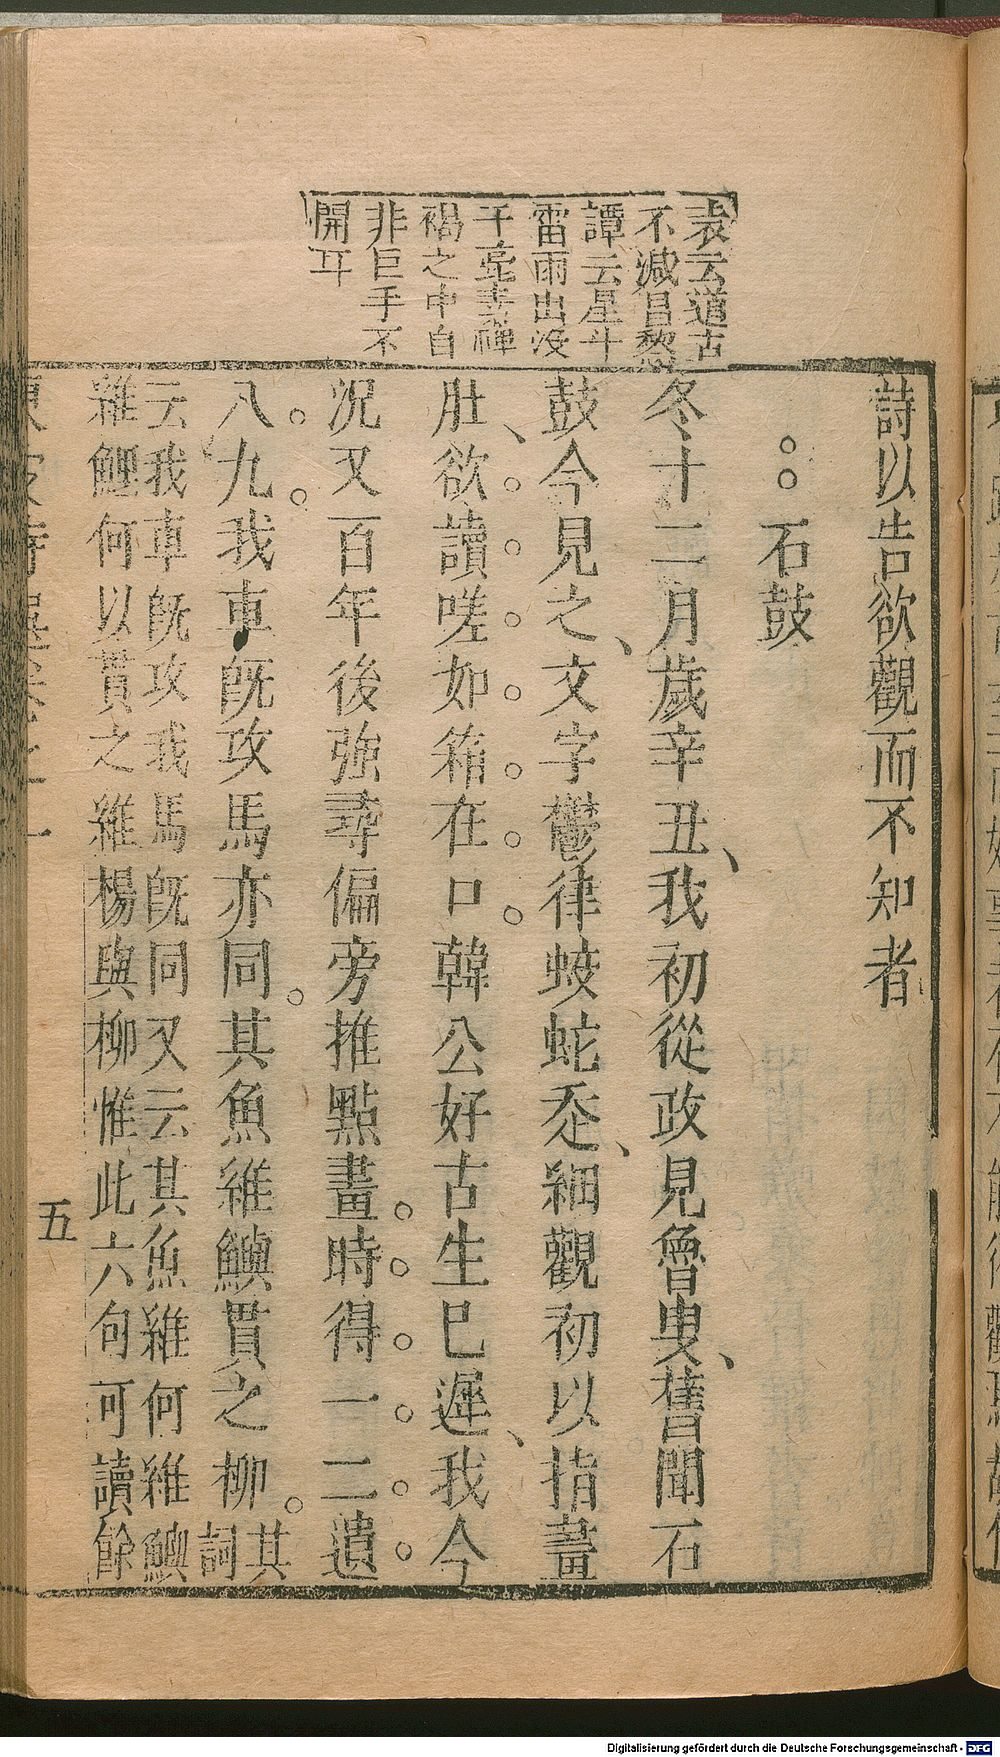 詩以告欲觀而不知者
石鼓
冬十二月歲辛丑我初從政見魯叟舊聞石
鼓今見之文字鬱律蛟蛇走細觀初以指畫
肚欲讀嗟如箝在口韓公好古生已遲我今
況又百年後強尋偏旁推點畫時得一二遺
八九我車旣攻馬亦同其魚維鱮貫之柳其
詞
云我車旣攻我馬旣同又云其魚維何維鱮
維鯉何以貫之維楊與柳惟此六句可讀餘
五
袁云道古
不減昌黎
譚云星斗
雷雨出没
于毫
褐之中自
非巨手不
開耳
Digitalisierung gefördert durch die Deutsche Forschungsgemeinschaft - DFG